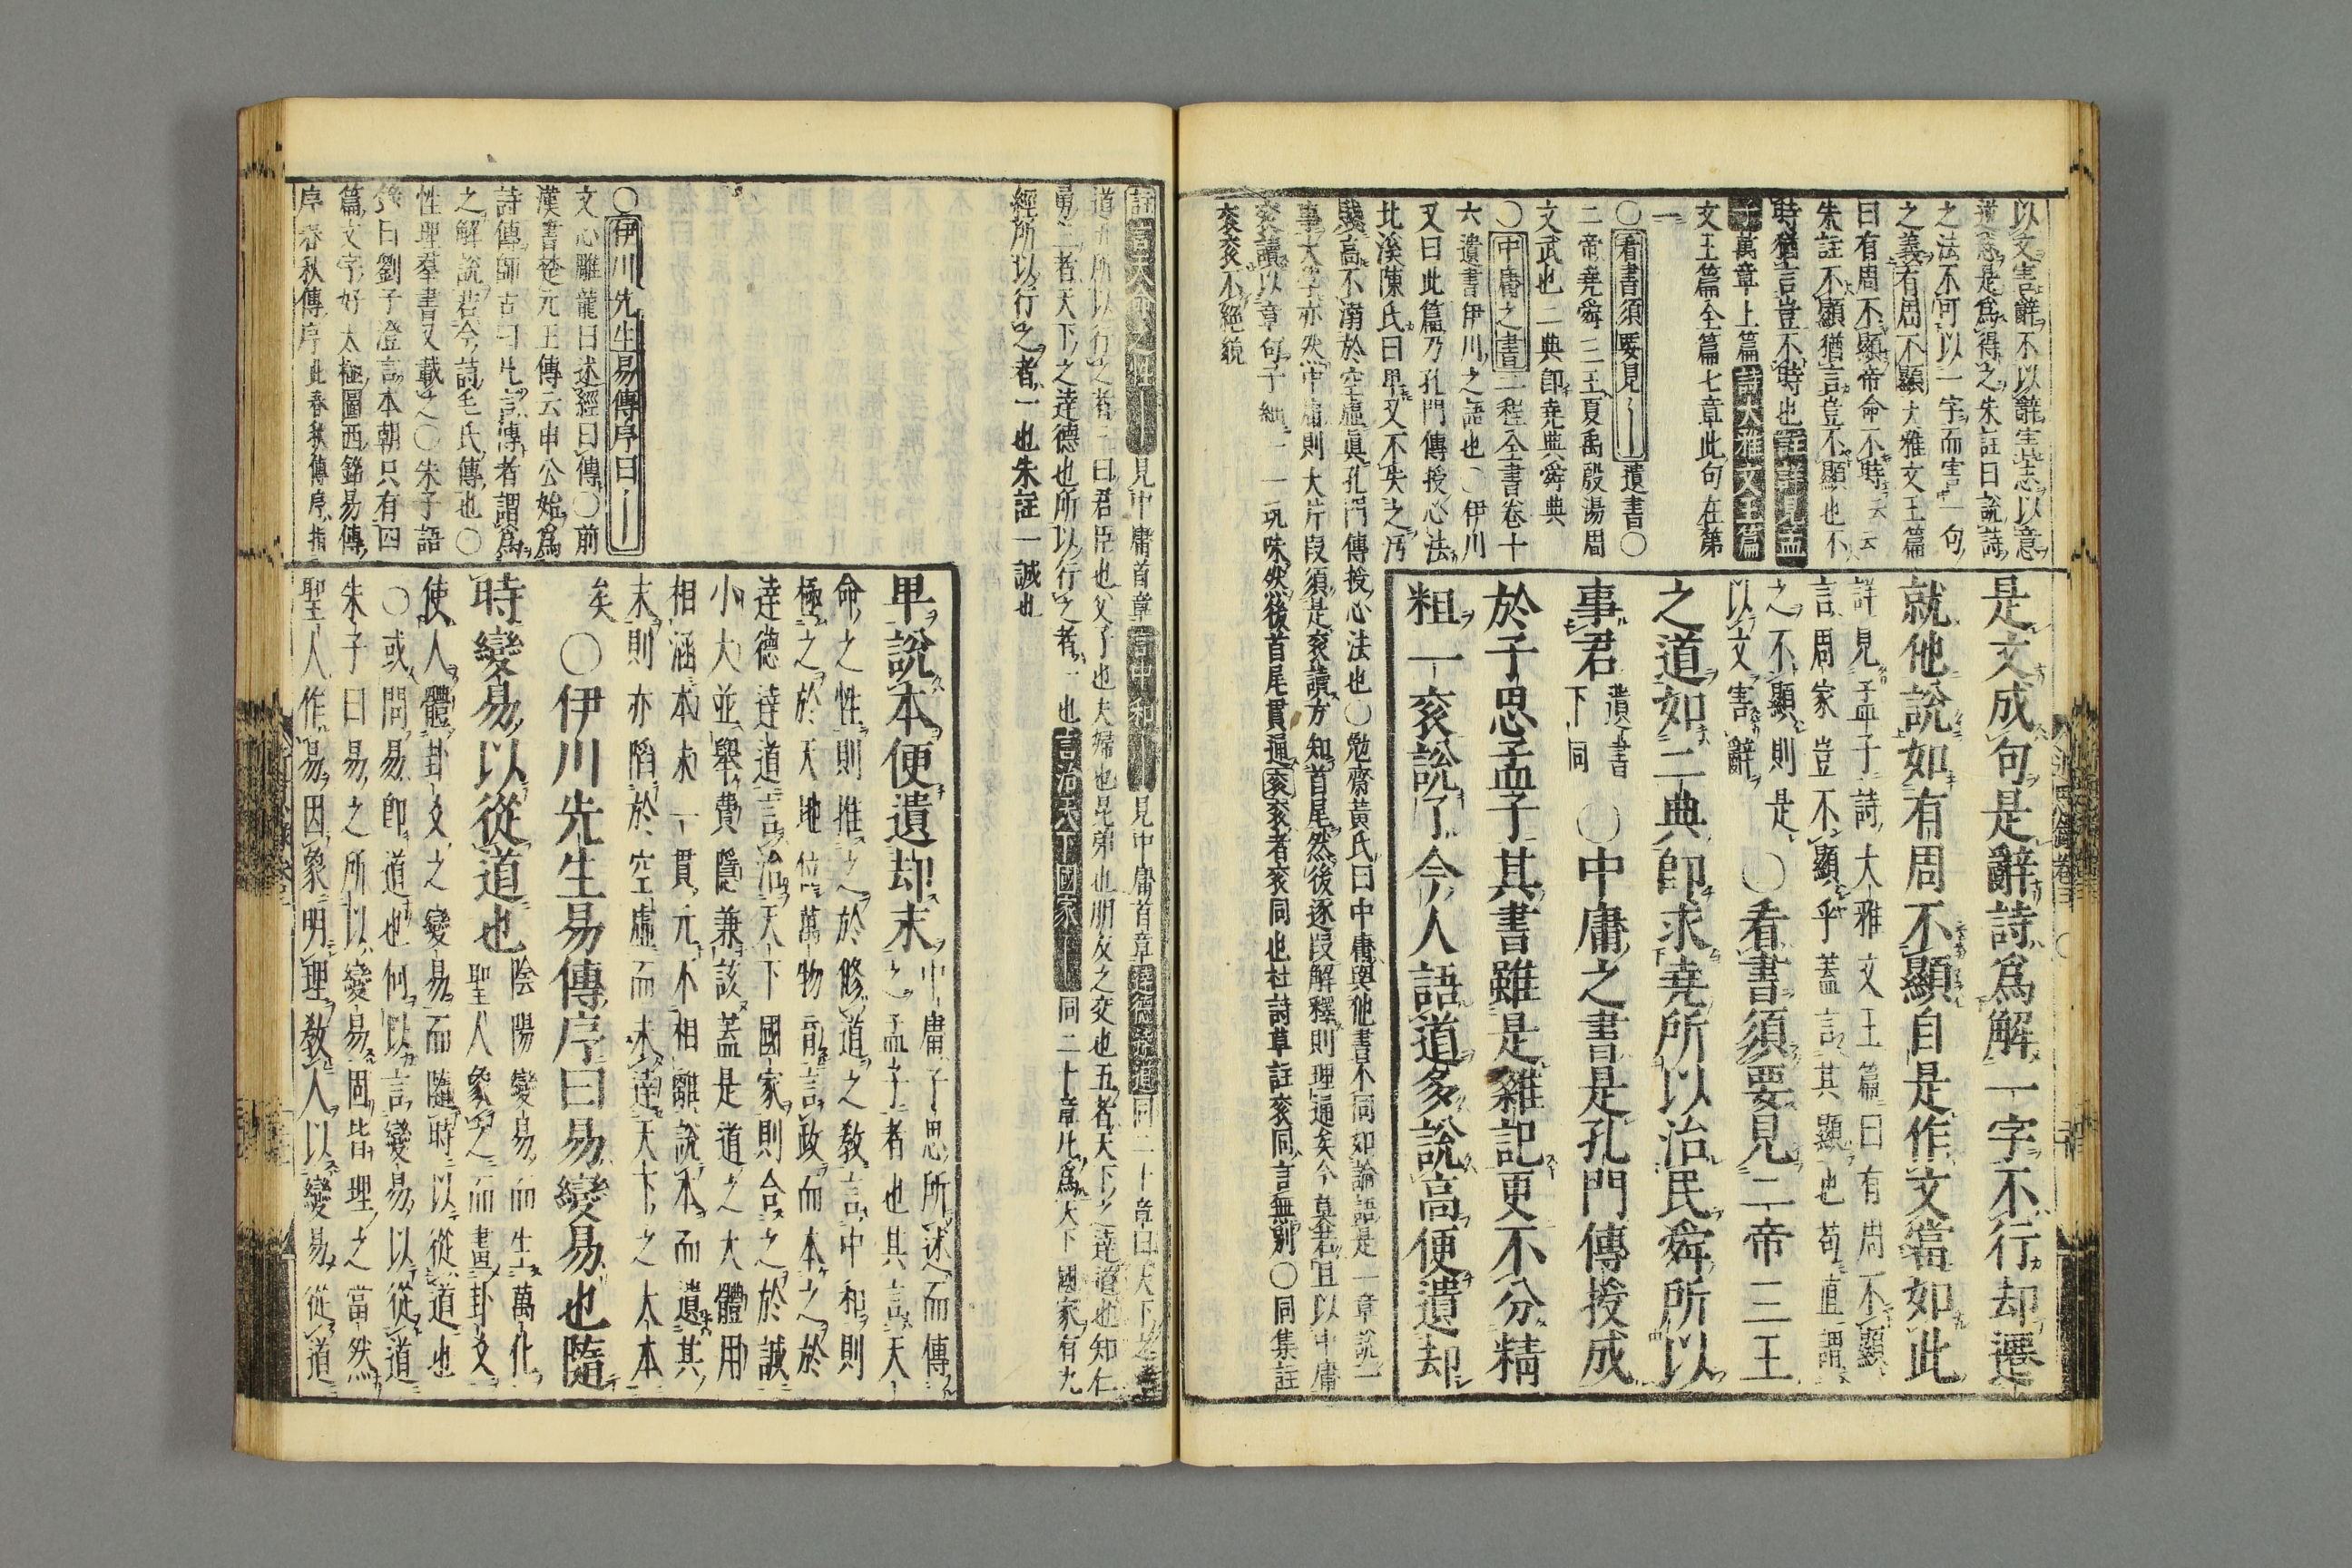 以文害辭不以辭害志以意
逆志是爲得之朱註曰說詩
之法不可以一字而害一句
之義有周不顯大雅文王篇
曰有周不顯帝命不時云云
朱註不顯猶言豈不顯也不
時猶言豈不時也註詳見孟
子萬章上篇詩大雅文王篇
文王篇全篇七章此句在第
一
〇看書須要見――遺書〇
二帝堯舜三王夏禹殷湯周
文武也二典卽堯典舜典
〇中庸之書二程全書卷十
六遺書伊川之語也〇伊川
又曰此篇乃孔門傳授心法
北溪陳氏曰卑又不失之汚
賤高不溺於空虛眞孔門傳授心法也〇勉齋黃氏曰中庸與他書不同如論語是一章說一
事大學亦然中庸則大片段須是衮讀方知首尾然後逐段解釋則理通矣今莫若且以中庸
衮讀以章句子細一一玩味然後首尾貫通衮衮者衮同也杜詩草註衮同言無別〇同集註
衮衮不絕貌
是文成句是辭詩爲解一字不行却遷
就他說如有周不顯自是作文當如此
詳見孟子詩大雅文王篇曰有周不顯
言周家豈不顯乎蓋言其顯也苟直謂
之不顯則是
以文害辭〇看書須要見二帝三王
之道如二典卽求堯所以治民舜所以
事君遺書
下同〇中庸之書是孔門傳授成
於子思孟子其書雖是雜記更不分精
粗一衮說了今人語道多說高便遺却
註言天命之性――見中庸首章言中和――見中庸首章達德達道同二十章曰天下之
道五所以行之者三曰君臣也父子也夫婦也昆弟也朋友之交也五者天下之達道也知仁
勇三者天下之達德也所以行之者一也言治天下國家――同二十章凡爲天下國家有九
經所以行之者一也朱註一誠也
〇伊川先生易傳序曰――
文心雕龍曰述經曰傳〇前
漢書楚元王傳云申公始爲
詩傳師古曰凡言傳者謂爲
之解說若今詩毛氏傳也〇
性理群書又載之〇朱子語
錄曰劉子澄言本朝只有四
篇文字好太極圖西銘易傳
序春秋傳序此春秋傳序指
卑說本便遺却末中庸子思所述而傳
之孟子者也其言天
命之性則推之於脩道之敎言中和則
極之於天地位萬物育言政而本之於
達德達道言治天下國家則合之於誠
小大並舉費隱兼該蓋是道之大體用
相涵本末一貫元不相離說本而遺其
末則亦陷於空虛而未達天下之大本
矣〇伊川先生易傳序曰易變易也隨
時變易以從道也陰陽變易而生萬化
聖人象之而畫卦爻
使人體卦爻之變易而隨時以從道也
〇或問易卽道也何以言變易以從道
朱子曰易之所以變易固皆理之當然
聖人作易因象明理敎人以變易從道